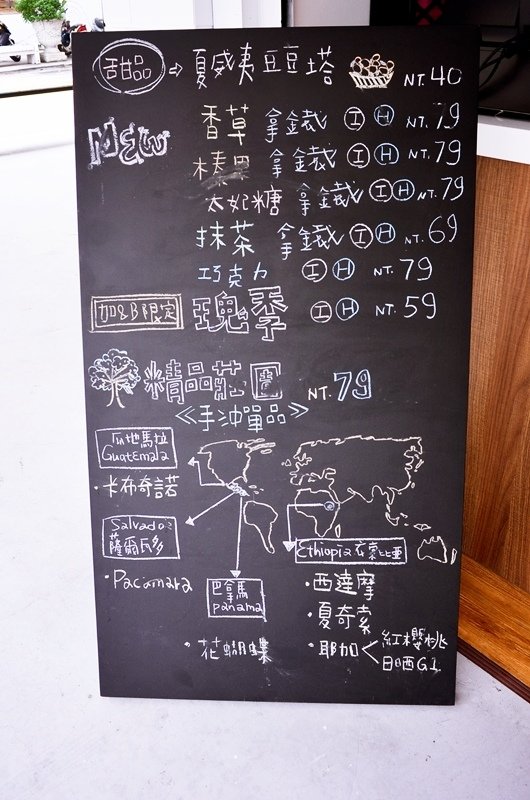 甜品 ⇨ 夏威夷豆豆塔 NT. 40
New
香草 拿鐵 Ⓘ Ⓗ NT. 79
榛果 拿鐵 Ⓘ Ⓗ NT. 79
太妃糖 拿鐵 Ⓘ Ⓗ NT. 79
抹茶 拿鐵 Ⓘ Ⓗ NT. 69
巧克力 Ⓘ Ⓗ NT. 79
加&B限定 瑰季 Ⓘ Ⓗ NT. 59
精品莊園 NT. 79
《手沖單品》
瓜地馬拉
Guatemala
·卡布奇諾
Salvador
薩爾瓦多
·Pacamara
巴拿馬
panama
·花蝴蝶
Ethiopia 衣索比亞
·西達摩
·夏奇索
·耶加 < 紅櫻桃
日晒G1